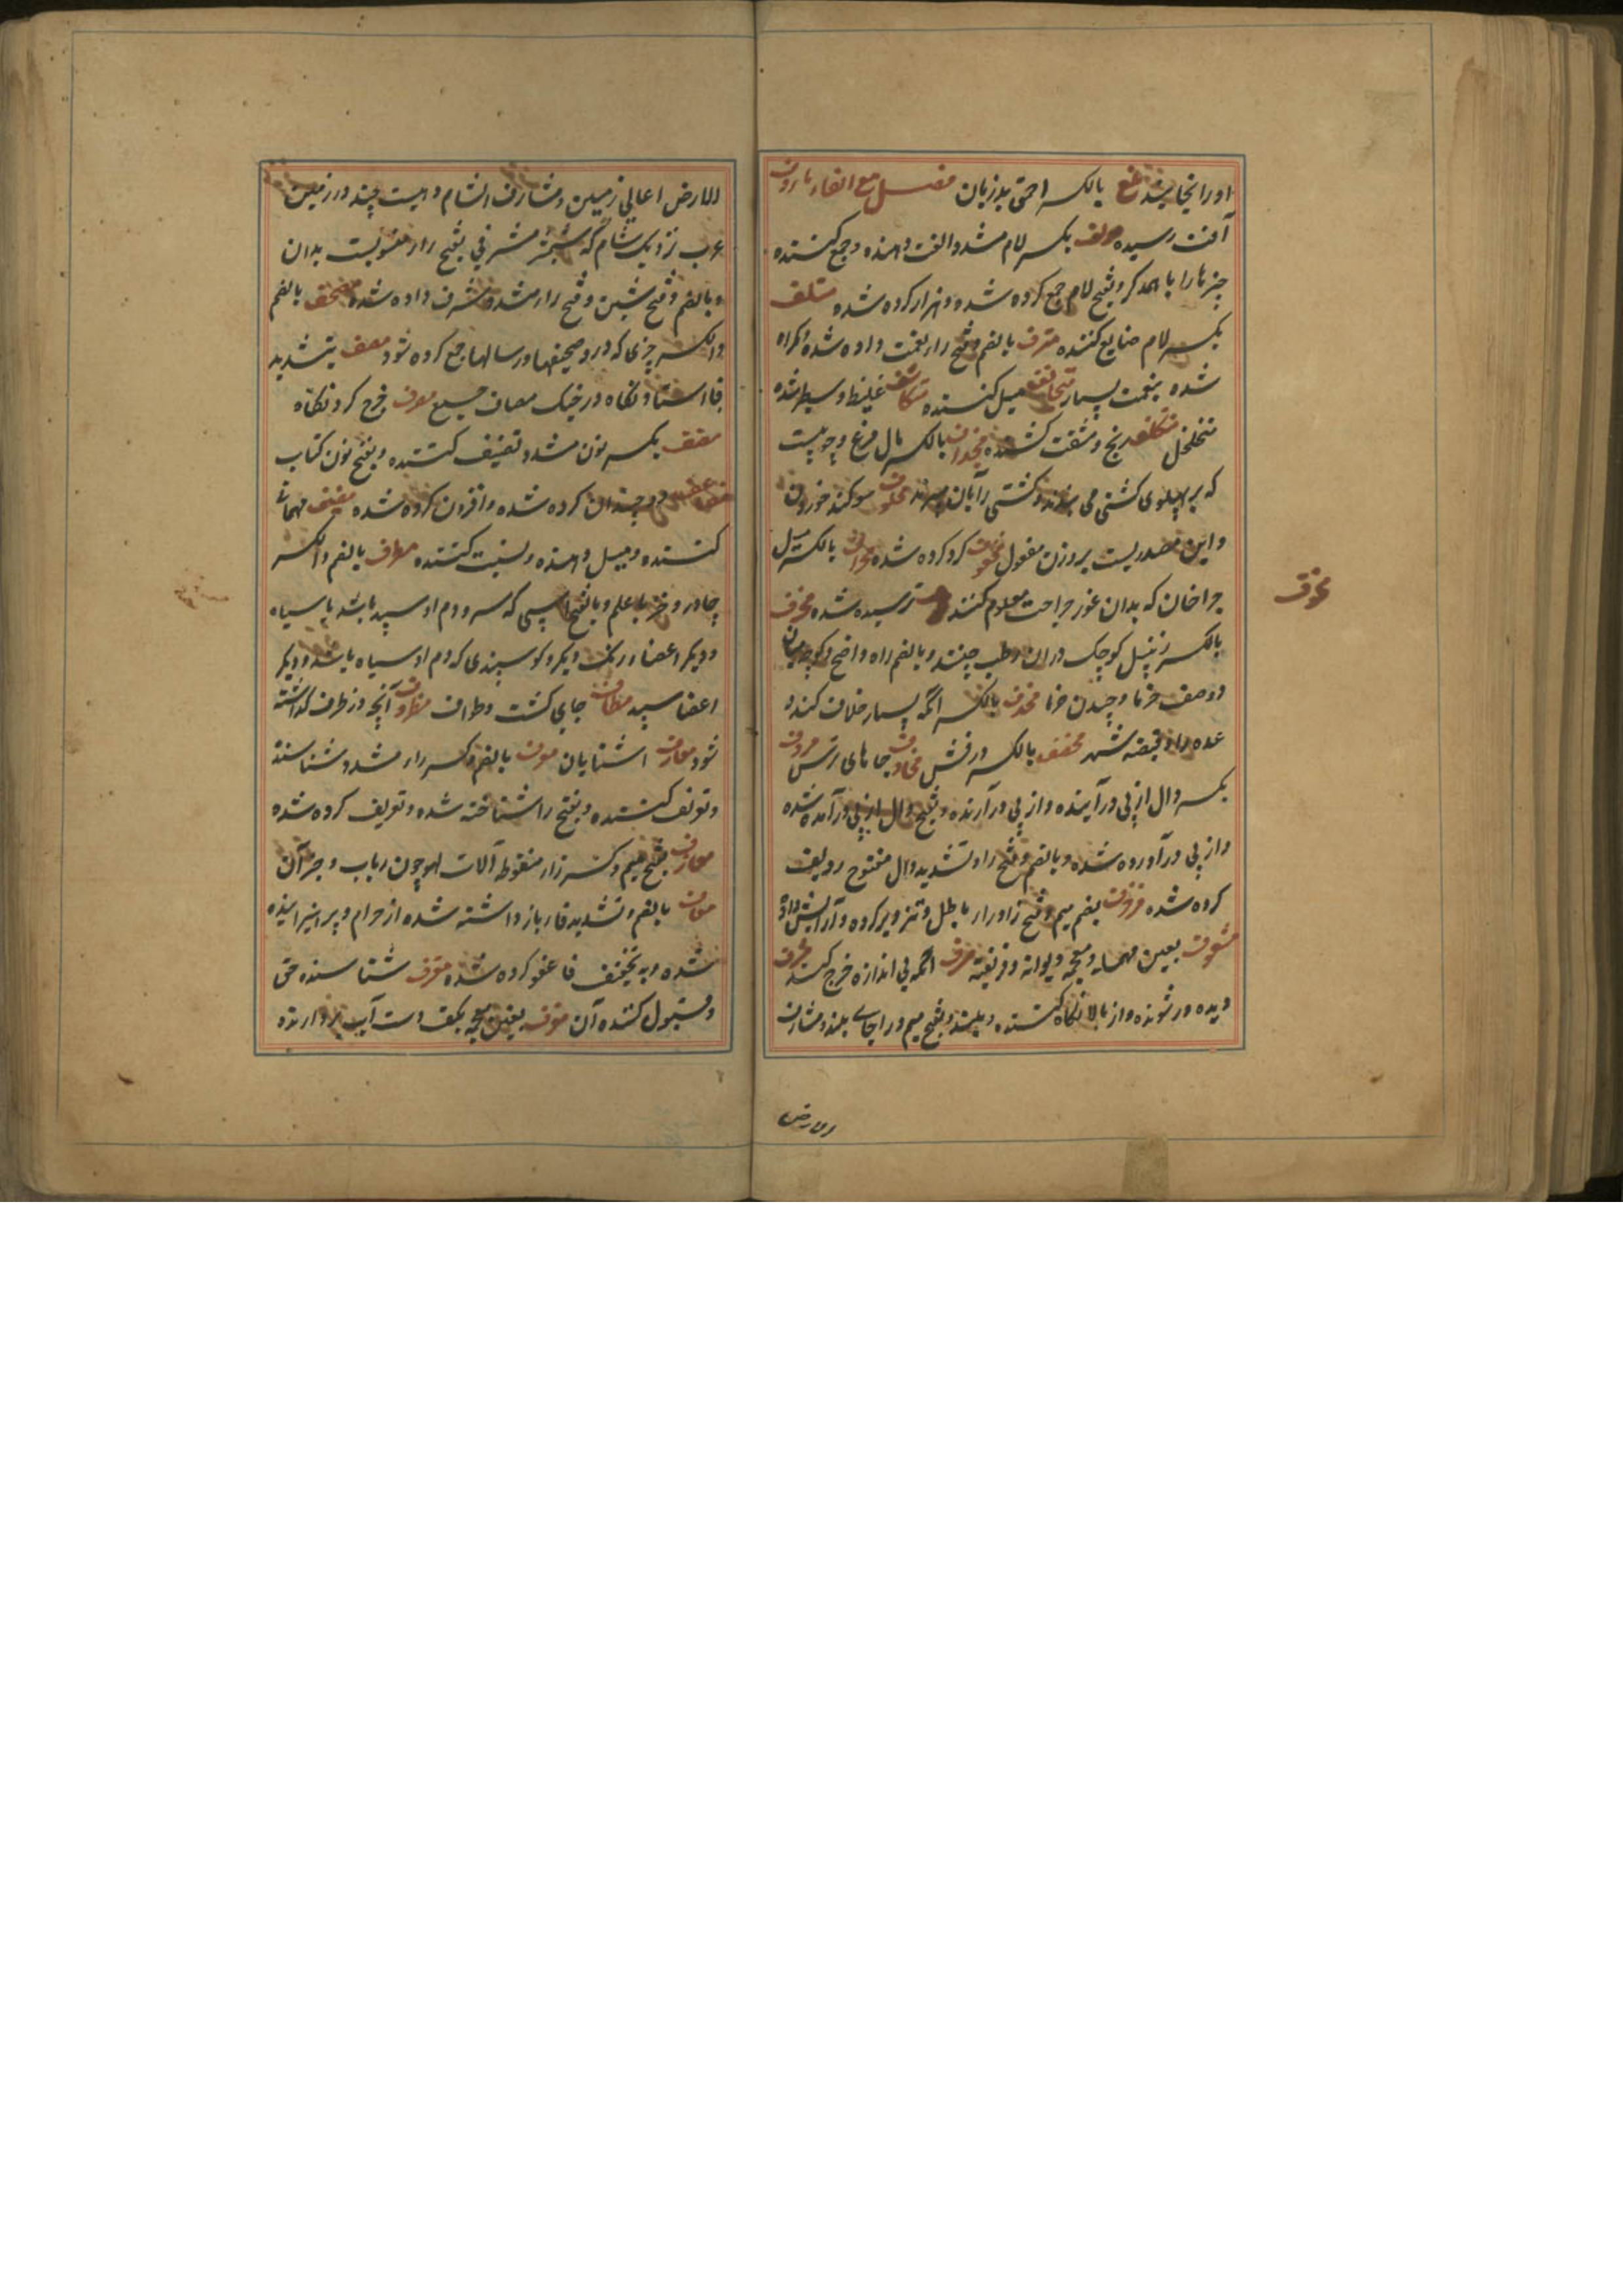 او را نجاسند مغ بالکسر احمق بدزبان فصل مع الفاء ماروف
آفت رسیده مولف بکسر لام مشدد الفت دهنده و جمع کننده
چیزها را با همدگر و بفتح لام جمع کرده شده و هزار کرده شده متلف
بکسر لام ضایع کننده مترف بالضم و فتح را نعمت داده شده و کمراه
شده بنعمت بسیار متجانف میل کننده متکاثف غلیظ و سطبر شده
متخلخل متکلف رنج و مشقت کشنده مجداف بالکسر بال مرغ و چوبیست
که بر پهلوی کشتی می بندند و کشتی را بآن میرانند محلوف سوکند خوردن
و این مصدریست بر وزن مفعول محفوف کرد کرده شده محراف بالکسر میل
جراحان که بدان غور جراحت معلوم کنند ترسیده شده مخرف
بالکسر زنبیل کوچک در آن رطب چینند و بالضم راه واضح و کوچه میان
دو صف خرما و چیدن خرما مخلاف بالکسر آنکه بسیار خلاف کند در
وعده مخصف بالکسر درفش مخاوف جاهای ترس مردف
بکسر دال از پی درآینده و از پی درآرنده و بفتح دال از پی درآمده شده
و از پی درآورده شده و بالضم و فتح را و تشدید دال مفتوح ردیف
کرده شده مزخرف بضم میم و فتح زا و را باطل و تزویر کرده و آرایش داده
مشعوف بعین مهمله و معجمه دیوانه و فریفته مسرف آنکه بی اندازه خرج کند مشرف
دیده ور شونده و از بالا نکاه کننده و بلند و بفتح میم و را جای بلند و مشارف
الارض
مخوف
الارض اعالی زمین و مشارف الشام دهیست چند در زمین
عرب نزدیک شام که شمشیر مشرفی بفتح را منسوبست بدان
و بالضم و فتح شین و فتح را مشدد مشرف داده شده مصحف بالضم
و الکسر چیزی که در و صحیفها و رسالها جمع کرده شود مصف بتشدید
فا استادنکاه در جنک مصاف جمیع مصرف خرج کردنکاه
مصنف بکسر نون مشدد تصنیف کننده و بفتح نون کتاب
مضاعف دو چندان کرده شده و افزون کرده شده مضیف مهمانی
کننده و میل دهنده و نسبت کننده مطرف بالضم و الکسر
چادر خز با علم و بالفتح اسپی که سر و دم او سپید باشد یا سیاه
و دیکر اعضا رنک دیکر و کوسپندی که دم او سیاه باشد و دیکر
اعضا سپید مطاف جای کشت و طواف مظروف آنچه در ظرف کذاشته
شود معارف آشنایان معرف بالضم و کسر را مشدد شناسنده
و تعریف کننده و بفتح را شناخته شده و تعریف کرده شده
معازف بفتح میم و کسر زا منقوطه آلات لهو چون رباب و جز آن
معاف بالضم و تشدید فا باز داشته شده از حرام و پرهیزانیده
شده و به تخفیف فا عفو کرده شده معترف شناسنده حق
و قبول کننده آن مغرف بغین معجمه بکف دست آب بردارنده